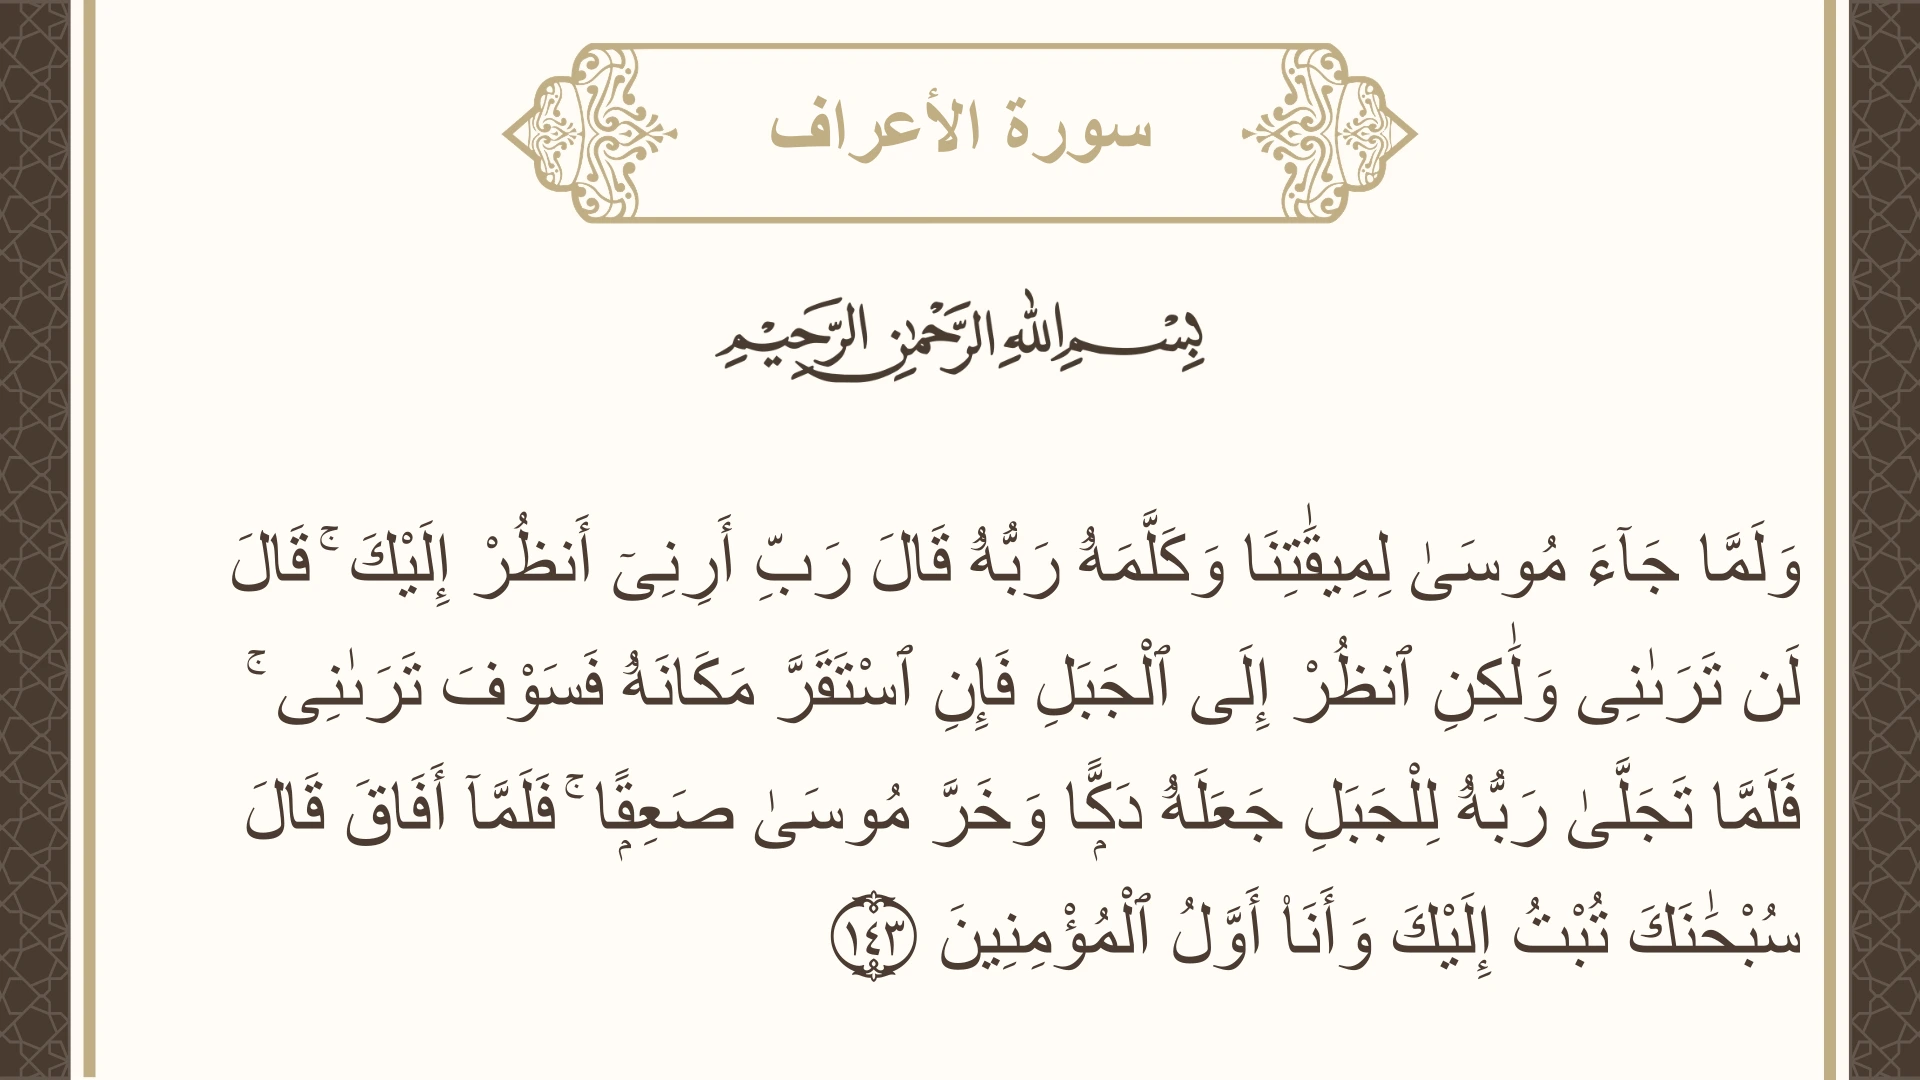 سورة الأعراف
بِسْمِ اللهِ الرَّحْمٰنِ الرَّحِيْمِ
وَلَمَّا جَآءَ مُوسَىٰ لِمِيقَـٰتِنَا وَكَلَّمَهُۥ رَبُّهُۥ قَالَ رَبِّ أَرِنِىٓ أَنظُرْ إِلَيْكَ ۚ قَالَ
لَن تَرَىٰنِى وَلَـٰكِنِ ٱنظُرْ إِلَى ٱلْجَبَلِ فَإِنِ ٱسْتَقَرَّ مَكَانَهُۥ فَسَوْفَ تَرَىٰنِى ۚ
فَلَمَّا تَجَلَّىٰ رَبُّهُۥ لِلْجَبَلِ جَعَلَهُۥ دَكًّۭا وَخَرَّ مُوسَىٰ صَعِقًۭا ۚ فَلَمَّآ أَفَاقَ قَالَ
سُبْحَـٰنَكَ تُبْتُ إِلَيْكَ وَأَنَا۠ أَوَّلُ ٱلْمُؤْمِنِينَ ١٤٣